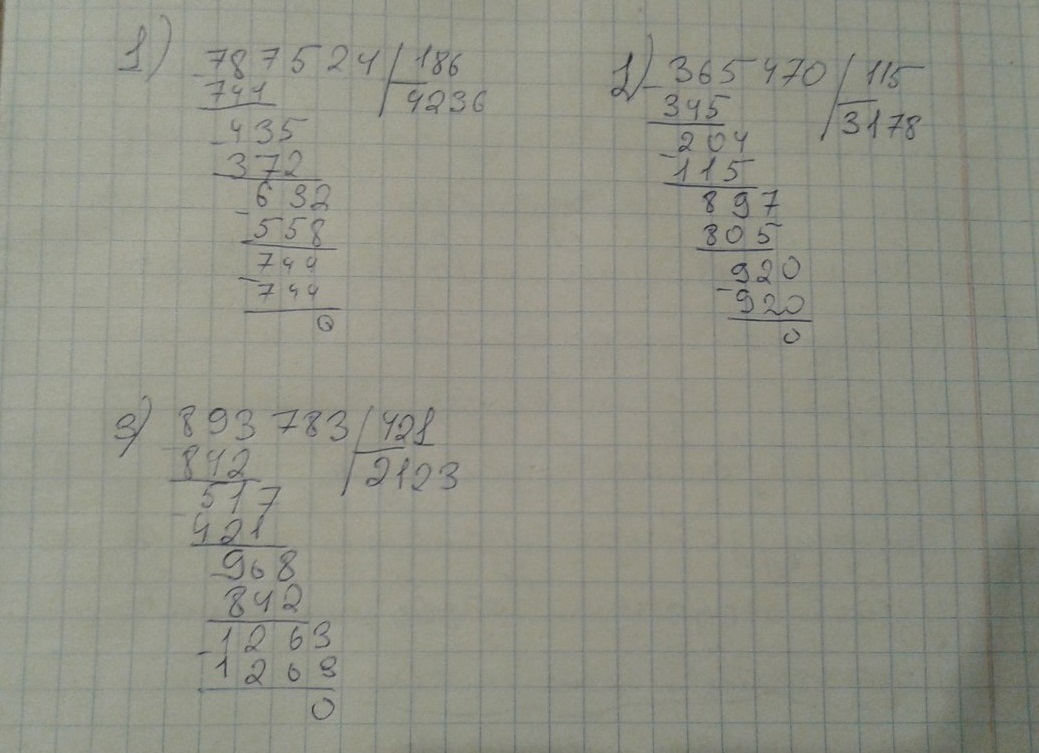 1) 787524 | 186
- 744 | 4236
- 435
372
- 632
558
- 744
744
0
2) - 365470 | 115
345 | 3178
- 204
115
897
805
- 920
920
0
3) 893783 | 421
- 842 | 2123
- 517
421
- 968
842
- 1263
1263
0